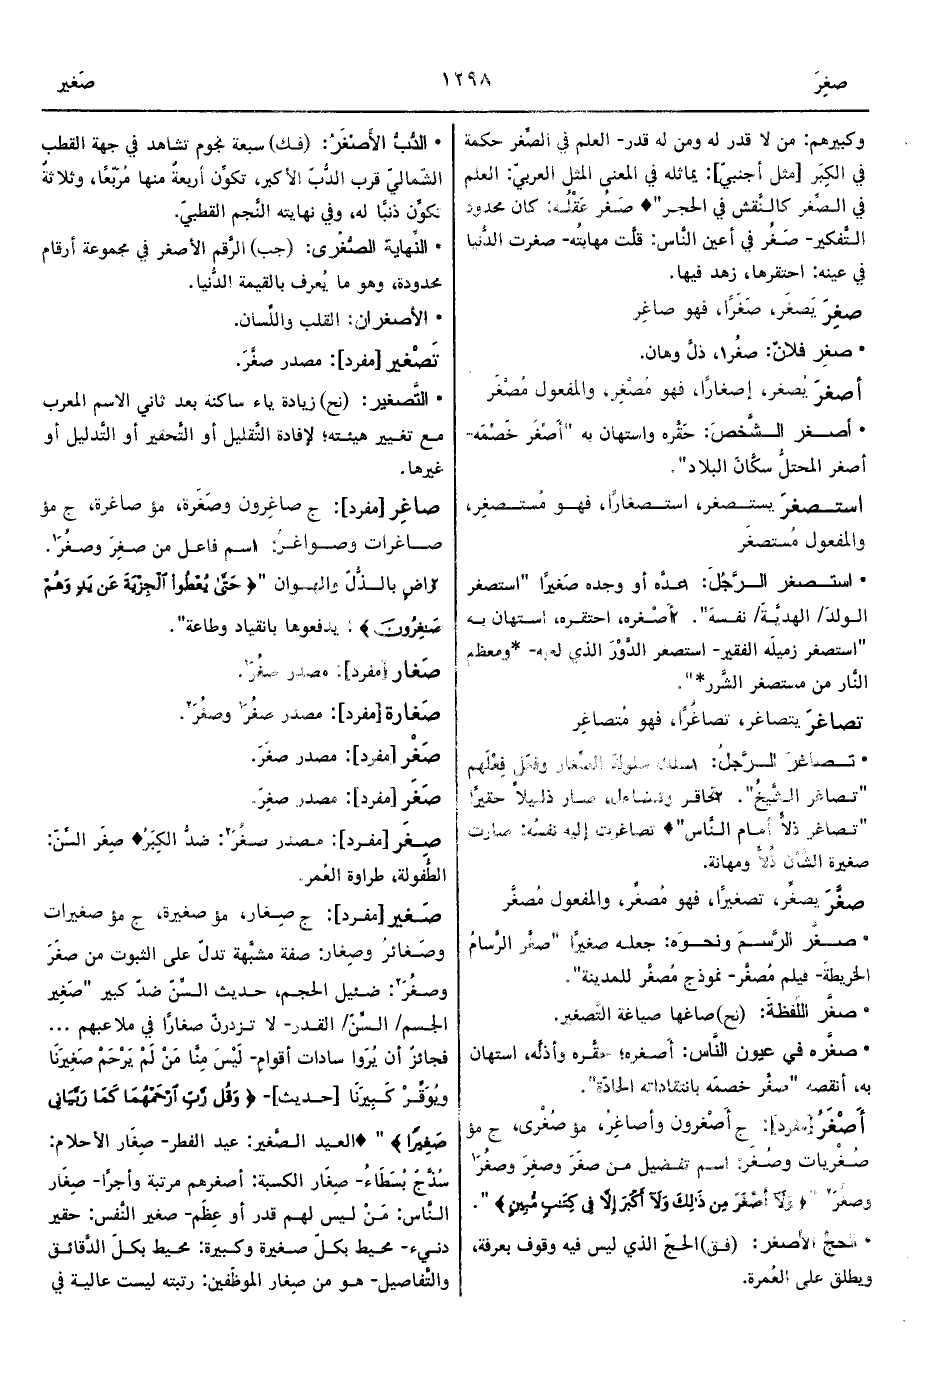 صغِرَ
١٢٩٨
صَغير
وكبيرهم: من لا قدر له ومن له قدر- العلم في الصِّغر حكمة
في الكِبَر [مثل أجنبيّ]: يماثله في المعنى المثل العربيّ: العلم
في الصِّغر كالنَّقش في الحجر"♦ صَغُر عَقْلُه: كان محدود
التَّفكير- صَغُر في أعين النَّاس: قلَّت مهابتُه- صغرت الدُّنيا
في عينه: احتقرها، زهد فيها.
صغِرَ يَصغَر، صَغَرًا، فهو صاغِر
• صغِر فلانٌ: صغُر١، ذلّ وهان.
أصغرَ يُصغر، إصغارًا، فهو مُصْغِر، والمفعول مُصْغَر
• أصغر الشَّخصَ: حَقَّره واستهان به "أصْغَر خَصْمَه-
أصغر المحتلُّ سكَّانَ البلاد".
استصغرَ يستصغر، استصغارًا، فهو مُستصغِر،
والمفعول مُستصغَر
• استصغر الرَّجُلَ: ١عدَّه أو وجده صَغيرًا "استصغر
الولدَ/ الهديَّةَ/ نفسَه". ٢أصْغره، احتقره، استهان به
"استصغر زميلَه الفقير- استصغر الدَّوْرَ الذي لعبه- *ومعظم
النَّار من مستصغر الشَّرر*".
تصاغرَ يتصاغر، تصاغُرًا، فهو مُتصاغِر
• تصاغرَ الرَّجلُ: ١سلك سلوكَ الصِّغار وفعَل فِعْلَهم
"تصاغر الشَّيخُ". ٢تحاقر وتضاءل، صار ذليلاً حقيرًا
"تصاغر ذلاًّ أمام النَّاس"♦ تصاغرت إليه نفسُه: صارت
صغيرة الشَّأن ذُلاًّ ومهانة.
صغَّرَ يصغِّر، تصغيرًا، فهو مُصغِّر، والمفعول مُصغَّر
• صغَّر الرَّسمَ ونحوَه: جعله صغيرًا "صغَّر الرَّسامُ
الخريطةَ- فيلم مُصغَّر- نموذج مُصغَّر للمدينة".
• صغَّر اللَّفظةَ: (نح) صاغها صياغة التَّصغير.
• صغَّره في عيون النَّاس: أصغره؛ حقَّره وأذلّه، استهان
به، أنقصه "صغَّر خصمَه بانتقاداته الحادّة".
أصْغَرُ [مفرد]: ج أصْغرون وأصاغِرُ، مؤ صُغْرى، ج مؤ
صُغْريات وصُغَر: اسم تفضيل من صغَرَ وصغِرَ وصغُرَ١
وصغُرَ٢ "﴿ وَلَا أَصْغَرَ مِن ذَٰلِكَ وَلَا أَكْبَرَ إِلَّا فِي كِتَٰبٍ مُّبِينٍ ﴾".
• الحجُّ الأصغر: (فق) الحجّ الذي ليس فيه وقوف بعرفة،
ويطلق على العُمرة.
• الدُّبُّ الأَصْغَرُ: (فك) سبعة نجوم تشاهد في جهة القطب
الشَّماليّ قرب الدُّبّ الأكبر، تكوِّن أربعةٌ منها مُربَّعًا، وثلاثةٌ
تكوِّن ذنَبًا له، وفي نهايته النَّجم القطبيّ.
• النِّهاية الصُّغْرى: (جب) الرَّقم الأصغر في مجموعة أرقام
محدودة، وهو ما يُعرف بالقيمة الدُّنيا.
• الأصغران: القلب واللِّسان.
تَصْغير [مفرد]: مصدر صغَّرَ.
• التَّصغير: (نح) زيادة ياء ساكنة بعد ثاني الاسم المعرب
مع تغيير هيئته؛ لإفادة التَّقليل أو التَّحقير أو التَّدليل أو
غيرها.
صاغِر [مفرد]: ج صاغِرون وصَغَرة، مؤ صاغرة، ج مؤ
صاغرات وصواغرُ: ١اسم فاعل من صغِرَ وصغُرَ١.
٢راضٍ بالذُّلّ والهوان "﴿ حَتَّىٰ يُعْطُواْ ٱلْجِزْيَةَ عَن يَدٍ وَهُمْ
صَٰغِرُونَ ﴾: يدفعوها بانقياد وطاعة".
صَغار [مفرد]: مصدر صغُرَ١.
صَغارة [مفرد]: مصدر صغُرَ١ وصغُرَ٢.
صَغْر [مفرد]: مصدر صغَرَ.
صَغَر [مفرد]: مصدر صغِرَ.
صِغَر [مفرد]: مصدر صغُرَ٢: ضدُّ الكِبَرُ♦ صِغَر السِّنّ:
الطُّفولة، طراوة العُمر.
صَغير [مفرد]: ج صِغار، مؤ صغيرة، ج مؤ صغيرات
وصَغائرُ وصِغار: صفة مشبَّهة تدلّ على الثبوت من صغَرَ
وصغُرَ٢: ضئيل الحجم، حديث السِّنّ ضدّ كبير "صَغِير
الجسم/ السِّنّ/ القدر- لا تزدرنّ صغارًا في ملاعبهم ...
فجائزٌ أن يُرَوا سادات أقوام- لَيْسَ مِنَّا مَنْ لَمْ يَرْحَمْ صَغِيرَنَا
ويُوَقِّرْ كَبِيرَنَا [حديث]- ﴿ وَقُل رَّبِّ ٱرْحَمْهُمَا كَمَا رَبَّيَانِي
صَغِيرًا ﴾"♦ العيد الصَّغير: عيد الفطر- صِغَار الأحلام:
سُذَّجٌ بُسَطَاءُ- صِغَار الكسبة: أصغرهم مرتبة وأجرًا- صِغَار
النَّاس: مَنْ ليس لهم قدر أو عِظَم- صغير النَّفس: حقير
دنيء- محيط بكلّ صغيرة وكبيرة: محيط بكلّ الدَّقائق
والتَّفاصيل- هو من صِغار الموظَّفين: رتبته ليست عالية في